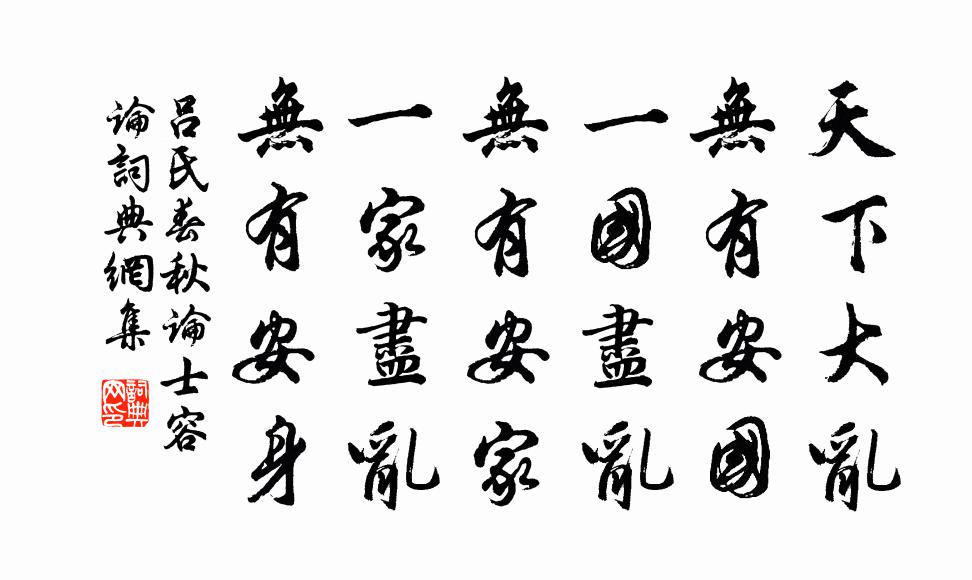 天下大亂
無有安國
一國盡亂
無有安家
一家盡亂
無有安身
呂氏春秋論士容
論詞典網集
詞典
网印